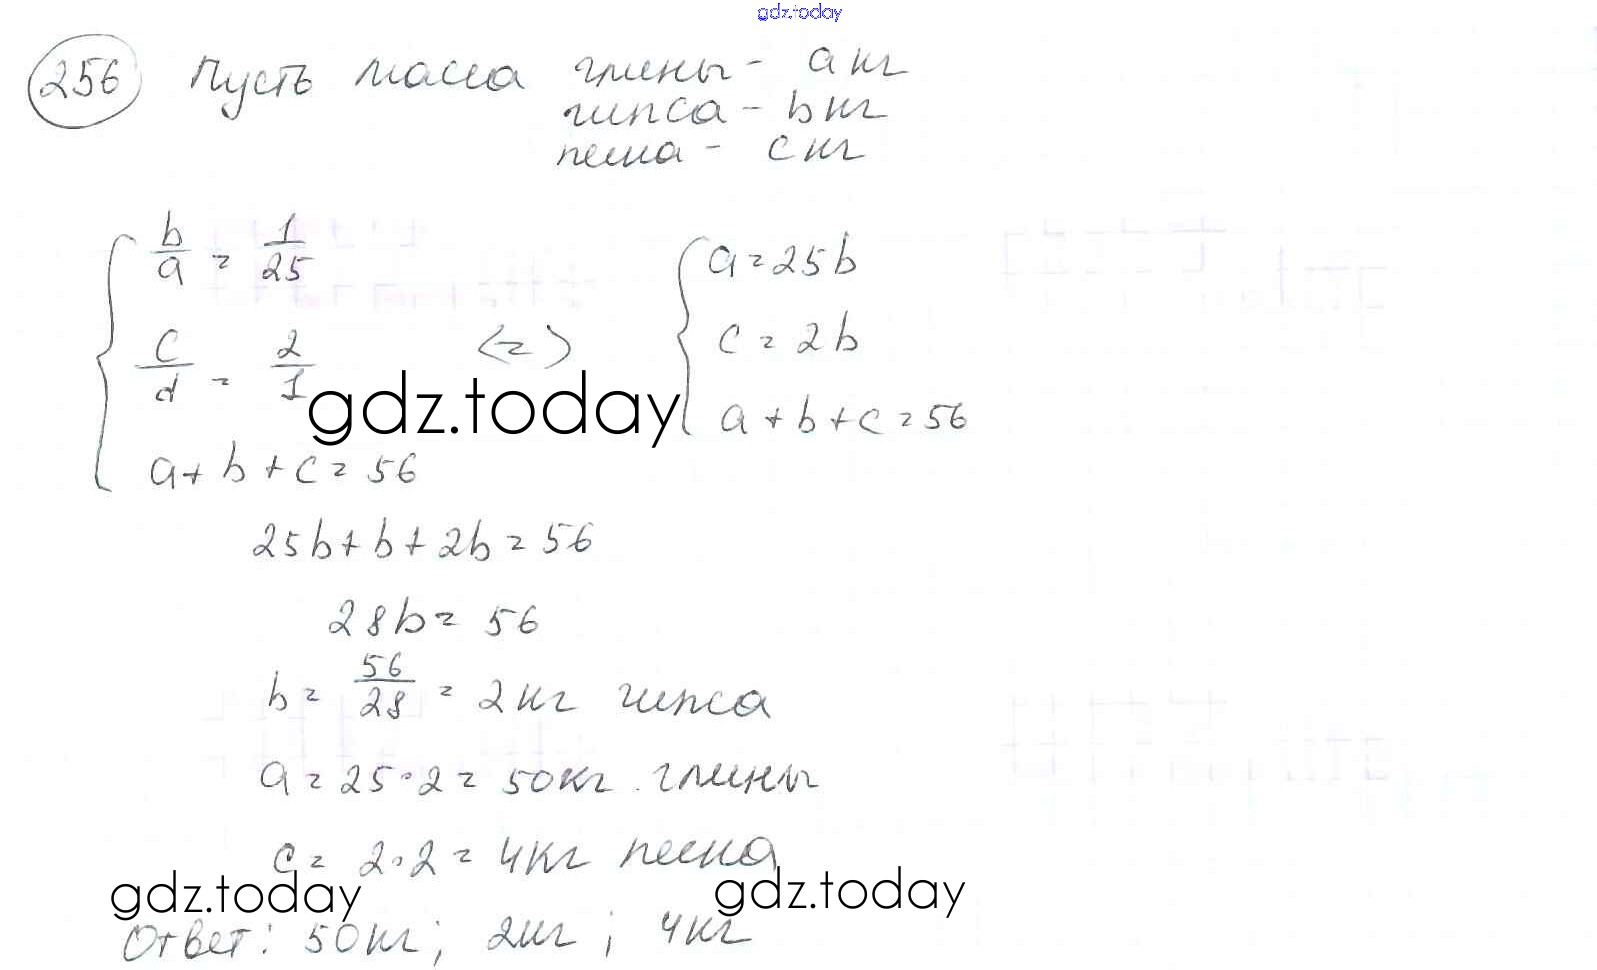 gdz.today
256 Пусть масса глины - a кг
гипса - b кг
песка - c кг
b/a = 1/25
c/d = 2/1
a + b + c = 56
<=>
a = 25b
c = 2b
a + b + c = 56
gdz.today
25b + b + 2b = 56
28b = 56
b = 56/28 = 2 кг гипса
a = 25 · 2 = 50 кг. глины
c = 2 · 2 = 4 кг песка
gdz.today gdz.today
Ответ: 50 кг; 2 кг; 4 кг